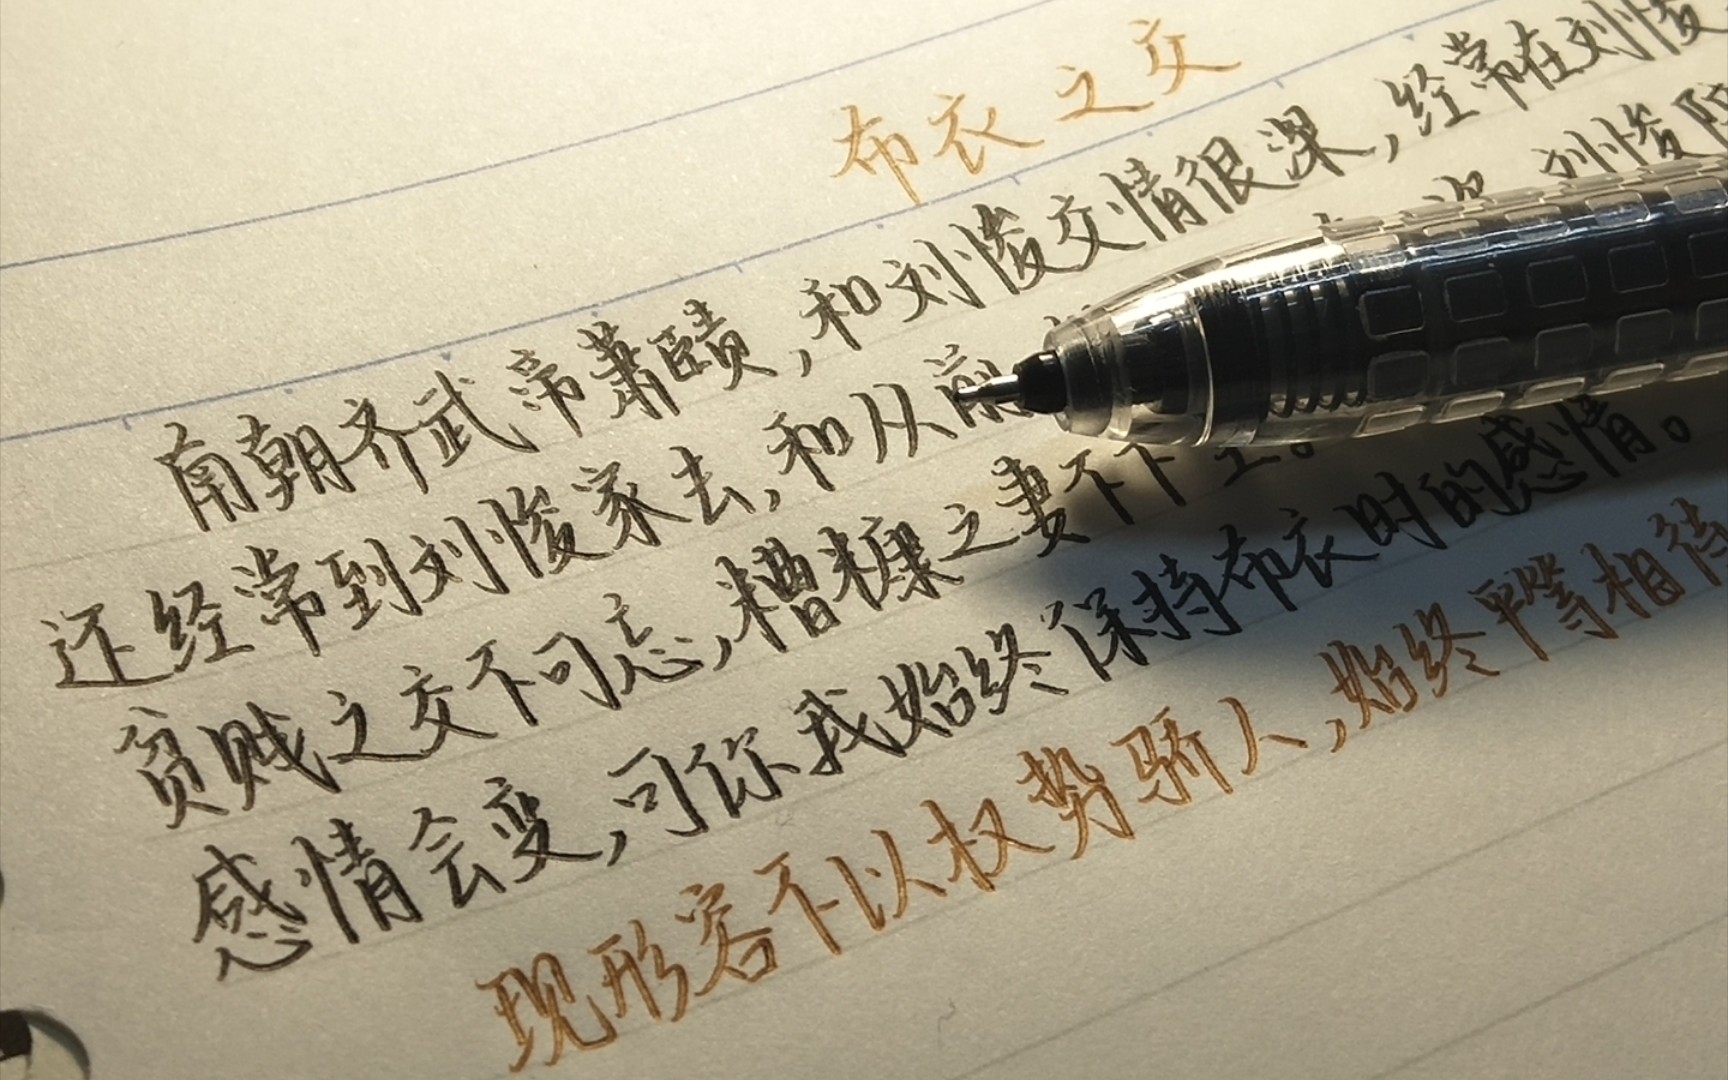 布衣之交
南朝齐武帝萧赜,和刘悛交情很深,经常在刘悛
还经常到刘悛家去,和从前
贫贱之交不可忘,糟糠之妻不下堂。
感情会变,可你我始终保持布衣时的感情。
现形容不以权势骄人,始终平等相待